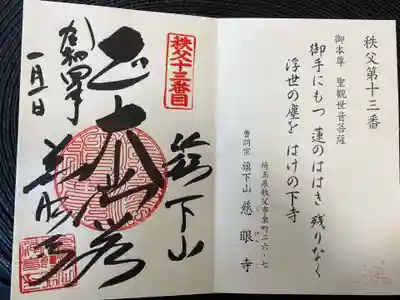 秩父第十三番
御本尊 聖観世音菩薩
御手にもつ 蓮のははき 残りなく
浮世の塵を はけの下寺
埼玉県秩父市東町二六-七
曹洞宗 旗下山 慈眼寺
秩父十三番目
旗下山
正大悲者
慈眼寺
令和四年
一月一日